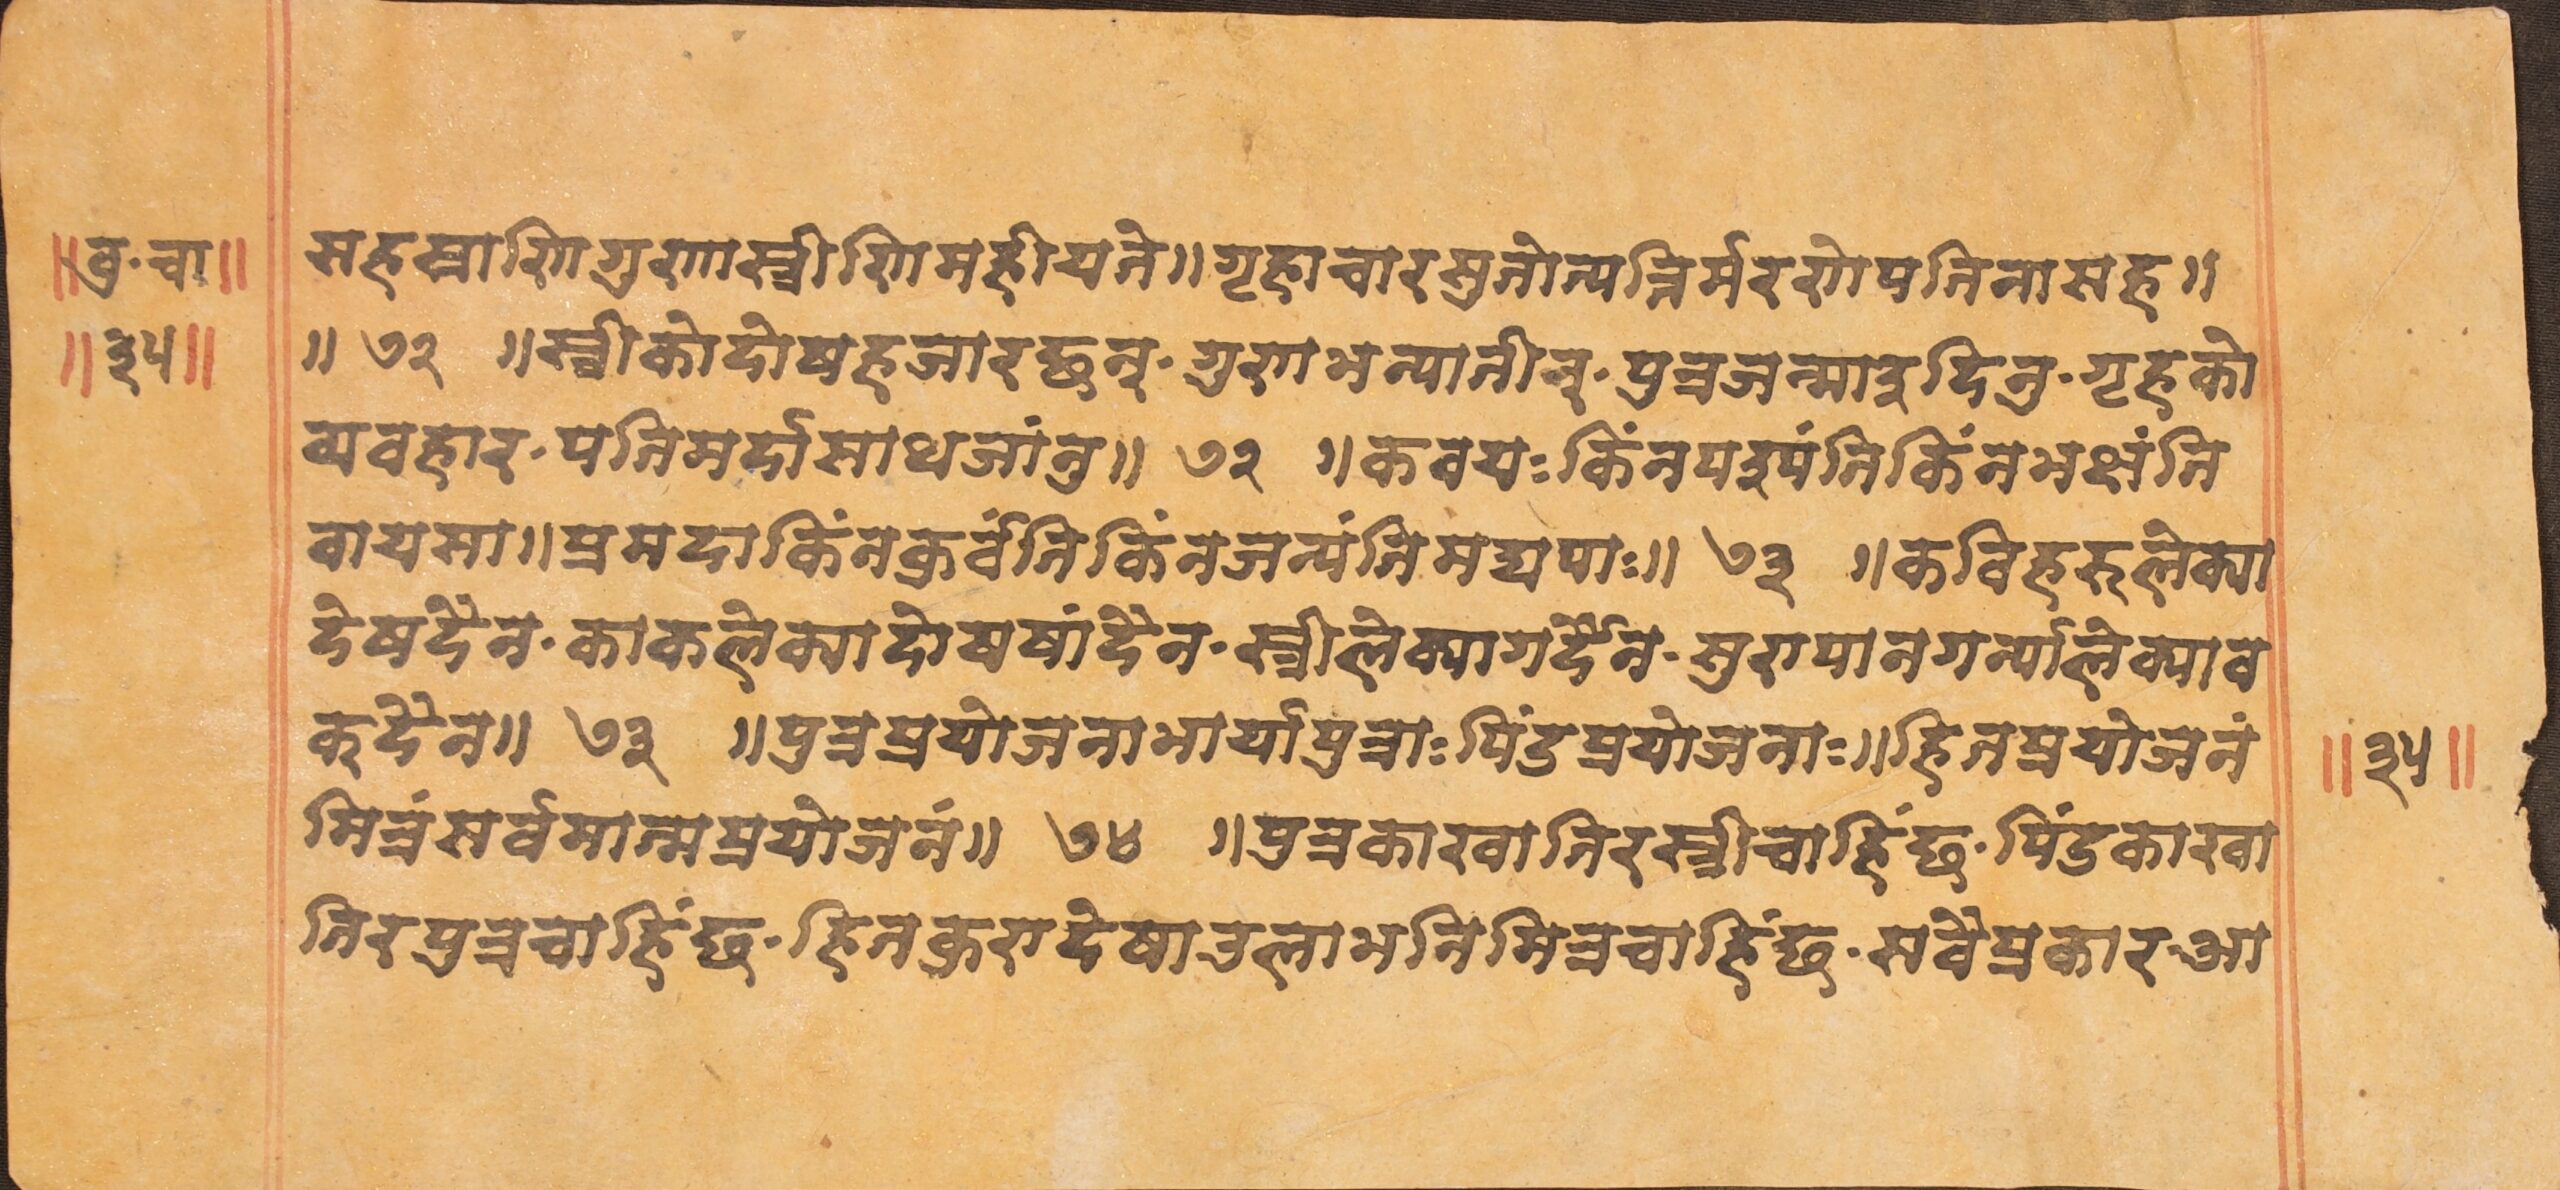 ॥वृ·चा॥
॥३५॥
सहस्राणिगुणास्त्रीणिमहीयते॥गृहाचारसुतोत्पन्निर्मरणेपतिनासह॥
॥ ७२ ॥स्त्रीकोदोषहजारछन्·गुणभन्यातीन्·पुत्रजन्माइदिनु·गृहको
व्यवहार·पतिमर्दासाथजांनु॥ ७२ ॥कवयःकिंनपश्यंतिकिंनभक्षंति
वायसा॥प्रमदाकिंनकुर्वंतिकिंनजल्पंतिमद्यपाः॥ ७३ ॥कविहरूलेक्या
देषदैन·काकलेक्यादोषषांदैन·स्त्रीलेक्यागर्दैन·सुरापानगर्न्यालेक्याव
क्दैन॥ ७३ ॥पुत्रप्रयोजनाभार्यापुत्राःपिंडप्रयोजनाः॥हितप्रयोजनं
मित्रंसर्वमात्मप्रयोजनं॥ ७४ ॥पुत्रकाखातिरस्त्रीचाहिंछ·पिंडकाखा
तिरपुत्रचाहिंछ·हितकुरादेषाउलाभनिमित्रचाहिंछ·सवैप्रकार·आ
॥३५॥